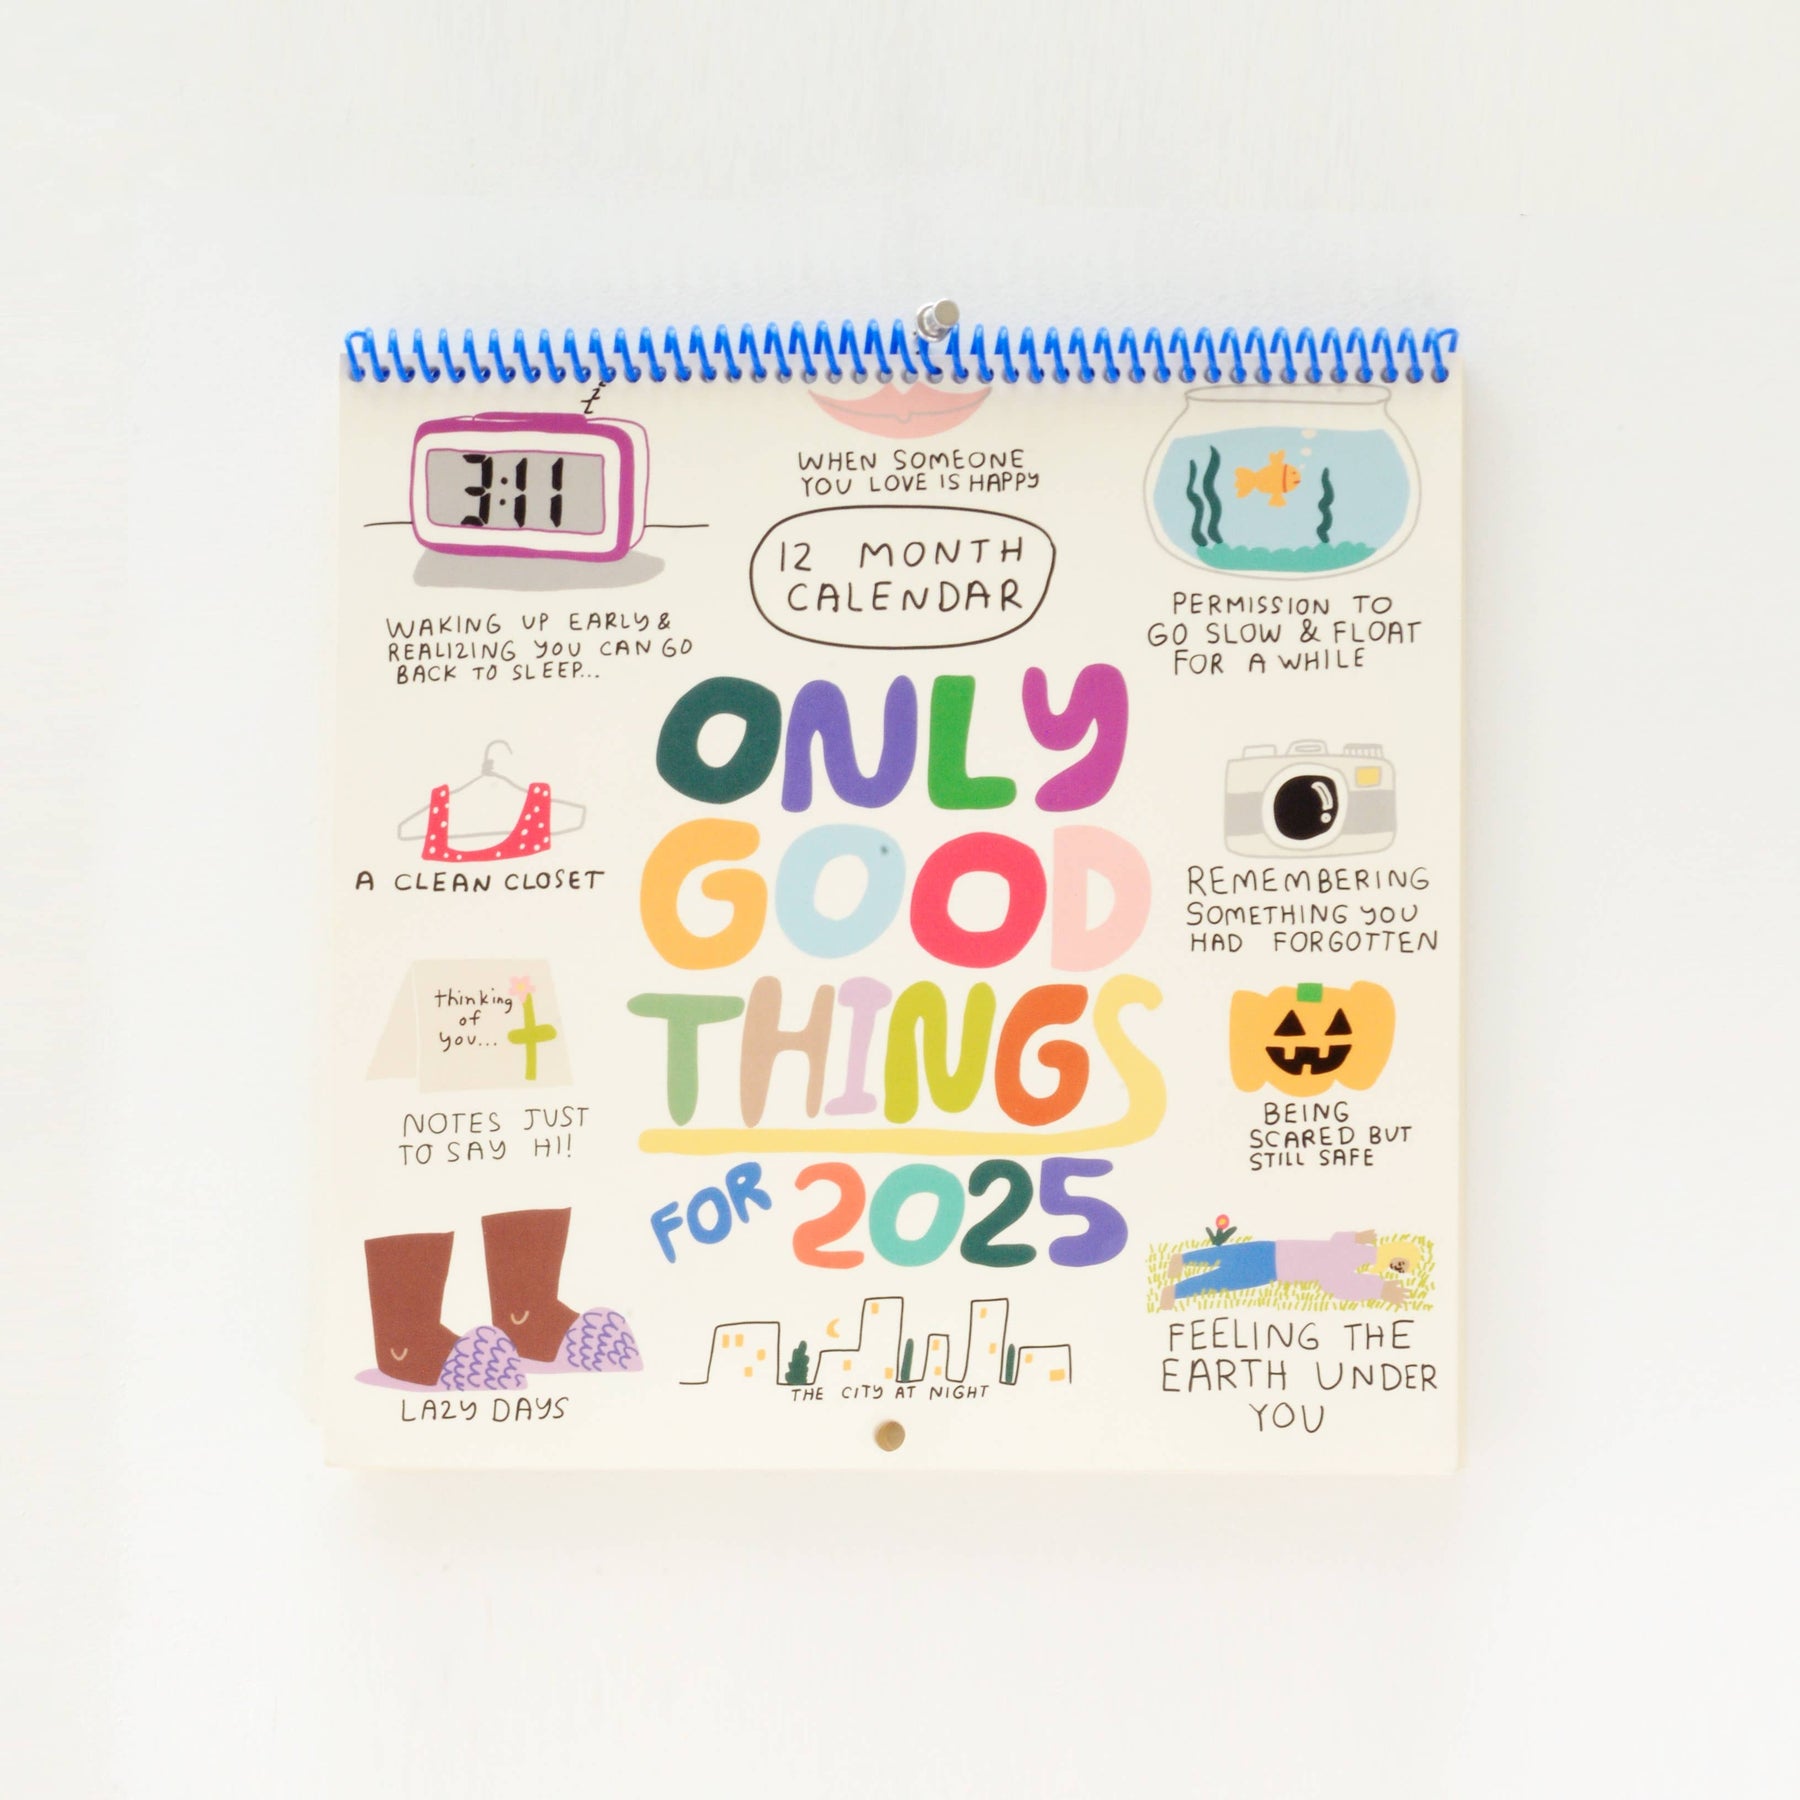 z
z
3:11
WAKING UP EARLY &
REALIZING YOU CAN GO
BACK TO SLEEP...
WHEN SOMEONE
YOU LOVE IS HAPPY
12 MONTH
CALENDAR
PERMISSION TO
GO SLOW & FLOAT
FOR A WHILE
ONLY
GOOD
THINGS
FOR 2025
A CLEAN CLOSET
REMEMBERING
SOMETHING YOU
HAD FORGOTTEN
thinking
of
you...
NOTES JUST
TO SAY HI!
BEING
SCARED BUT
STILL SAFE
LAZY DAYS
THE CITY AT NIGHT
FEELING THE
EARTH UNDER
YOU